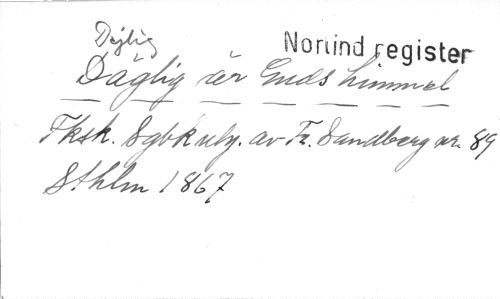 Dejlig
Norlind register
Däglig är Guds himmel
Fksk. Sgbk utg. av Fr. Sandberg nr. 89
Sthlm 1867